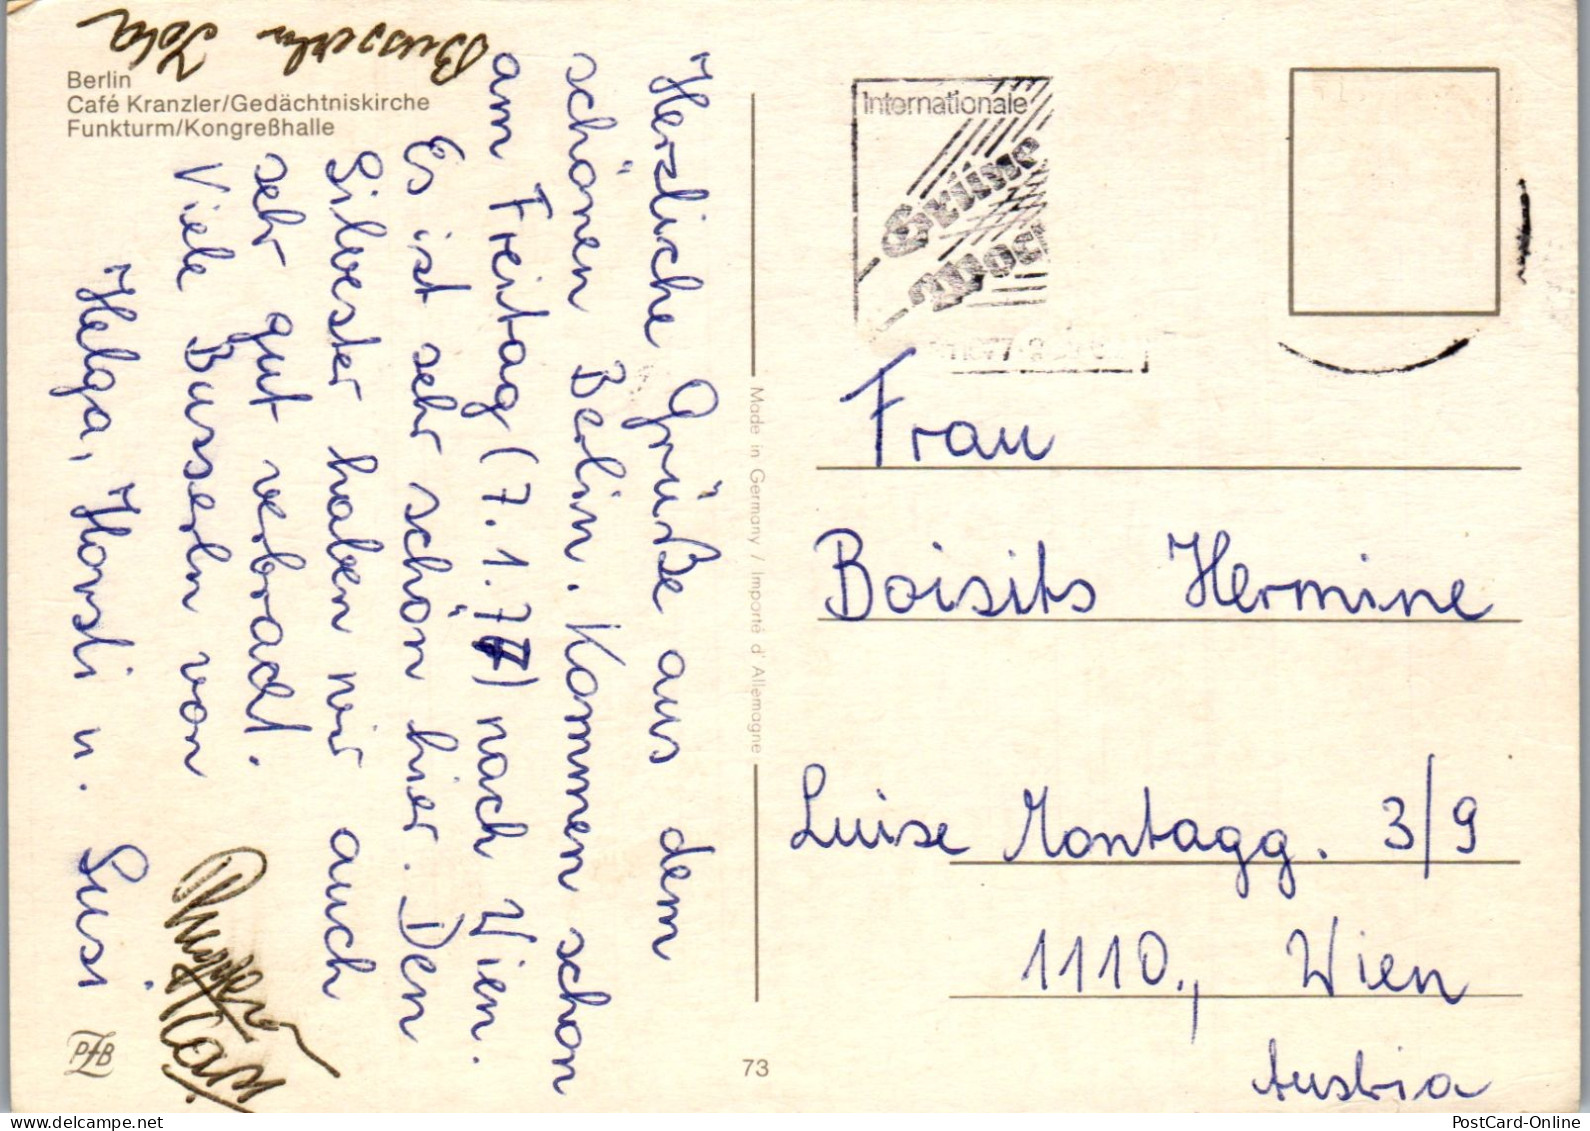 Berlin
Café Kranzler/Gedächtniskirche
Funkturm/Kongreßhalle
Herzliche Grüße aus dem
schönen Berlin. Kommen schon
am Freitag (7.1.77) nach Wien.
Es ist sehr schön hier. Den
Silvester haben wir auch
sehr gut verbracht.
Viele Busserln von
Helga, Horsti u. Susi
Busserln
Made in Germany / Importé d'Allemagne
73
PFB
Internationale
Grüne
Woch
Frau
Boisits Hermine
Luise Montagg. 3/9
1110., Wien
Austria
PostCard-Online